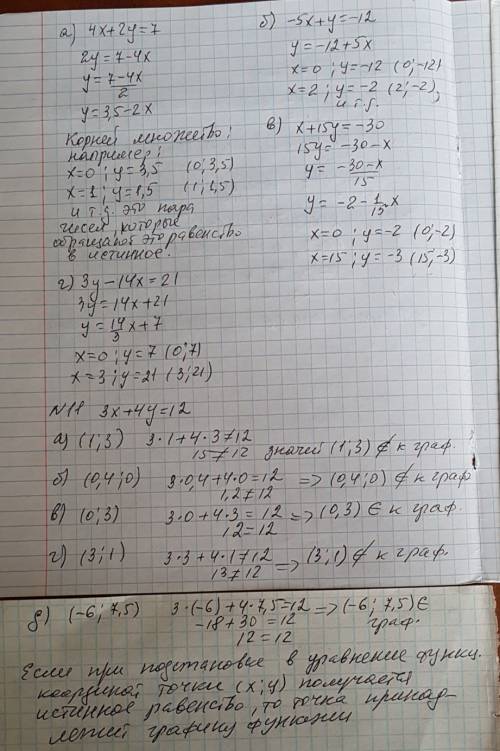 а) 4x+2y=7
2y=7-4x
y=7-4x/2
y=3,5-2x
Корней множество;
например:
x=0; y=3,5 (0;3,5)
x=1; y=1,5 (1;1,5)
и т.д. это пара
чисел, которые
обращают это равенство
в истинное.
б) -5x+y=-12
y=-12+5x
x=0; y=-12 (0;-12)
x=2; y=-2 (2;-2),
и т.д.
в) x+15y=-30
15y=-30-x
y=-30-x/15
y=-2-1/15 x
x=0; y=-2 (0;-2)
x=15; y=-3 (15;-3)
г) 3y-14x=21
3y=14x+21
y=14/3 x+7
x=0; y=7 (0;7)
x=3; y=21 (3;21)
N11 3x+4y=12
а) (1;3) 3·1+4·3≠12
15≠12 значит (1;3) ∉ к граф.
б) (0,4;0) 3·0,4+4·0=12 => (0,4;0) ∉ к граф
1,2≠12
в) (0;3) 3·0+4·3=12 => (0,3) ∈ к граф.
12=12
г) (3;1) 3·3+4·1≠12 => (3;1) ∉ к граф.
13≠12
д) (-6;7,5) 3·(-6)+4·7,5=12 => (-6;7,5) ∈
-18+30=12 граф.
12=12
Если при подстановке в уравнение функц.
координат точки (x;y) получается
истинное равенство, то точка принад-
лежит графику функции